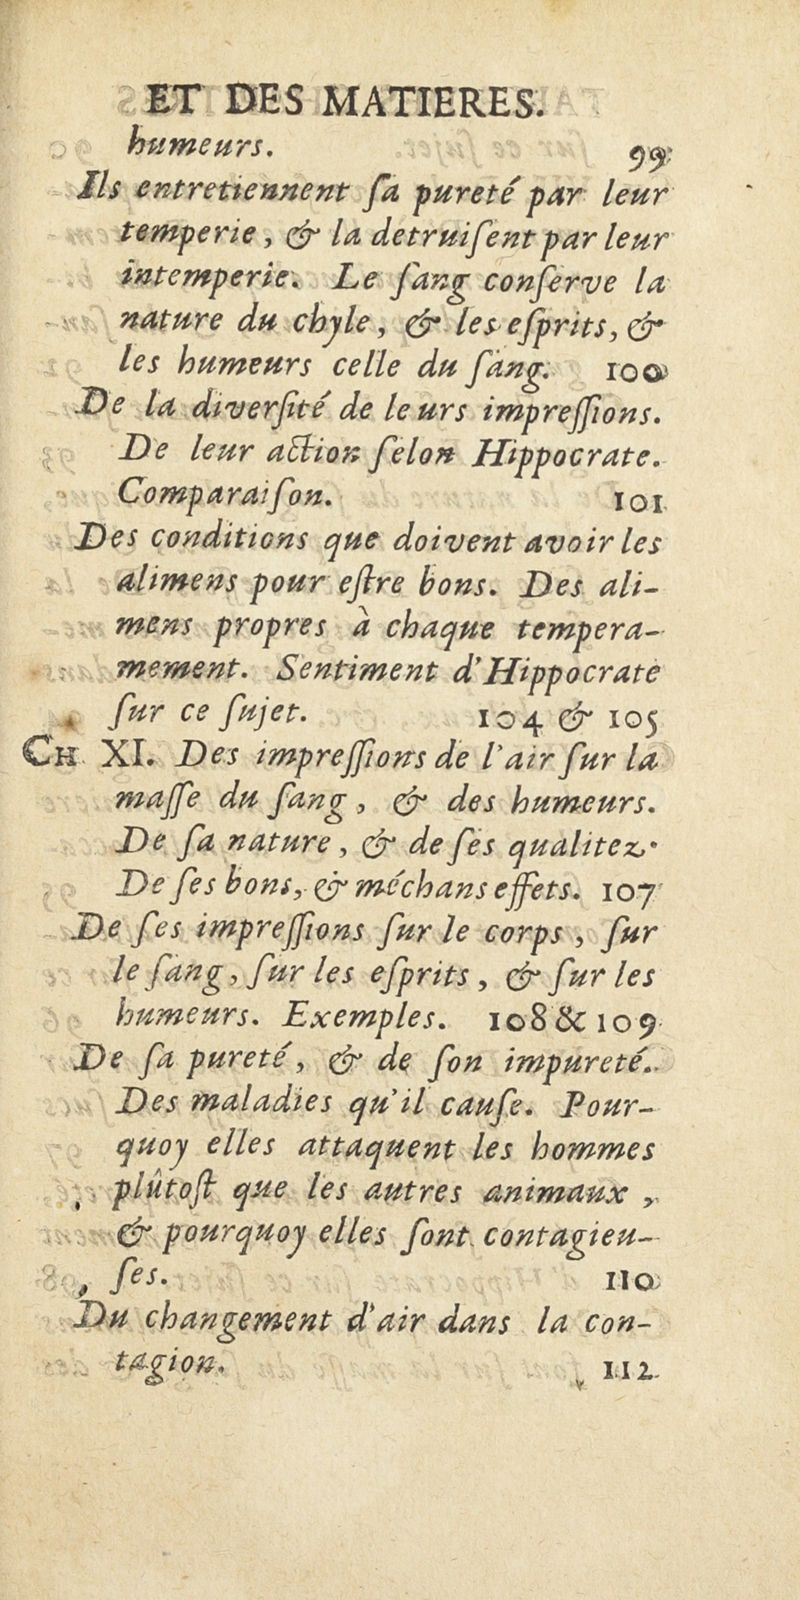 ET DES MATIERES.
humeurs. 99
Ils entretiennent ſa pureté par leur
temperie, & la detruiſent par leur
intemperie. Le ſang conſerve la
nature du chyle, & les eſprits, &
les humeurs celle du ſang. 100
De la diverſité de leurs impreſſions.
De leur action ſelon Hippocrate.
Comparaiſon. 101
Des conditions que doivent avoir les
alimens pour eſtre bons. Des ali-
mens propres à chaque tempera-
mement. Sentiment d'Hippocrate
ſur ce ſujet. 104 & 105
CH XI. Des impreſſions de l'air ſur la
maſſe du ſang, & des humeurs.
De ſa nature, & de ſes qualitez.
De ſes bons, & méchans effets. 107
De ſes impreſſions ſur le corps, ſur
le ſang, ſur les eſprits, & ſur les
humeurs. Exemples. 108 & 109
De ſa pureté, & de ſon impureté.
Des maladies qu'il cauſe. Pour-
quoy elles attaquent les hommes
plûtoſt que les autres animaux,
& pourquoy elles ſont contagieu-
ſes. 110
Du changement d'air dans la con-
tagion. 112